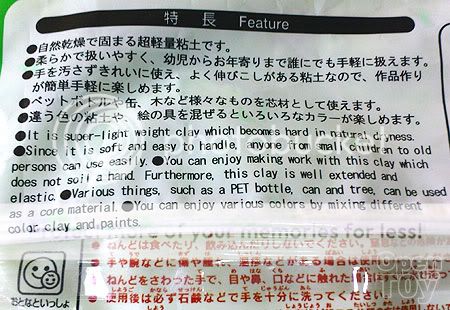 特長 Feature
●自然乾燥で固まる超軽量粘土です。
●柔らかで扱いやすく、幼児からお年寄りまで誰にでも手軽に扱えます。
●手を汚さずきれいに使え、よく伸びこしがある粘土なので、作品作り
が簡単手軽に楽しめます。
●ペットボトルや缶、木など様々なものを芯材として使えます。
●違う色の粘土や、絵の具を混ぜるといろいろなカラーが楽しめます。
●It is super-light weight clay which become hard in natural dryness.
●Since it is soft and easy to handle, too for small children to old
persons can use easily. ●You can enjoy making work with this clay which
does not soil a hand. Furthermore, this clay is well extended and
elastic. ●Various things, such as a PET bottle, can and tree, can be used
as a core material. ●You can enjoy various colors by mixing different
color clay and paints.
photobucket
of your memories for less!
ねんどは食べたり、飲み込んだりしないでください。
●手や腕などに傷や
●ねんどをさわった手で、目や鼻、口などに触れた
●使用後は必ず石鹸などで手を十分に洗ってください
おとなといっしょ
Open
Toy